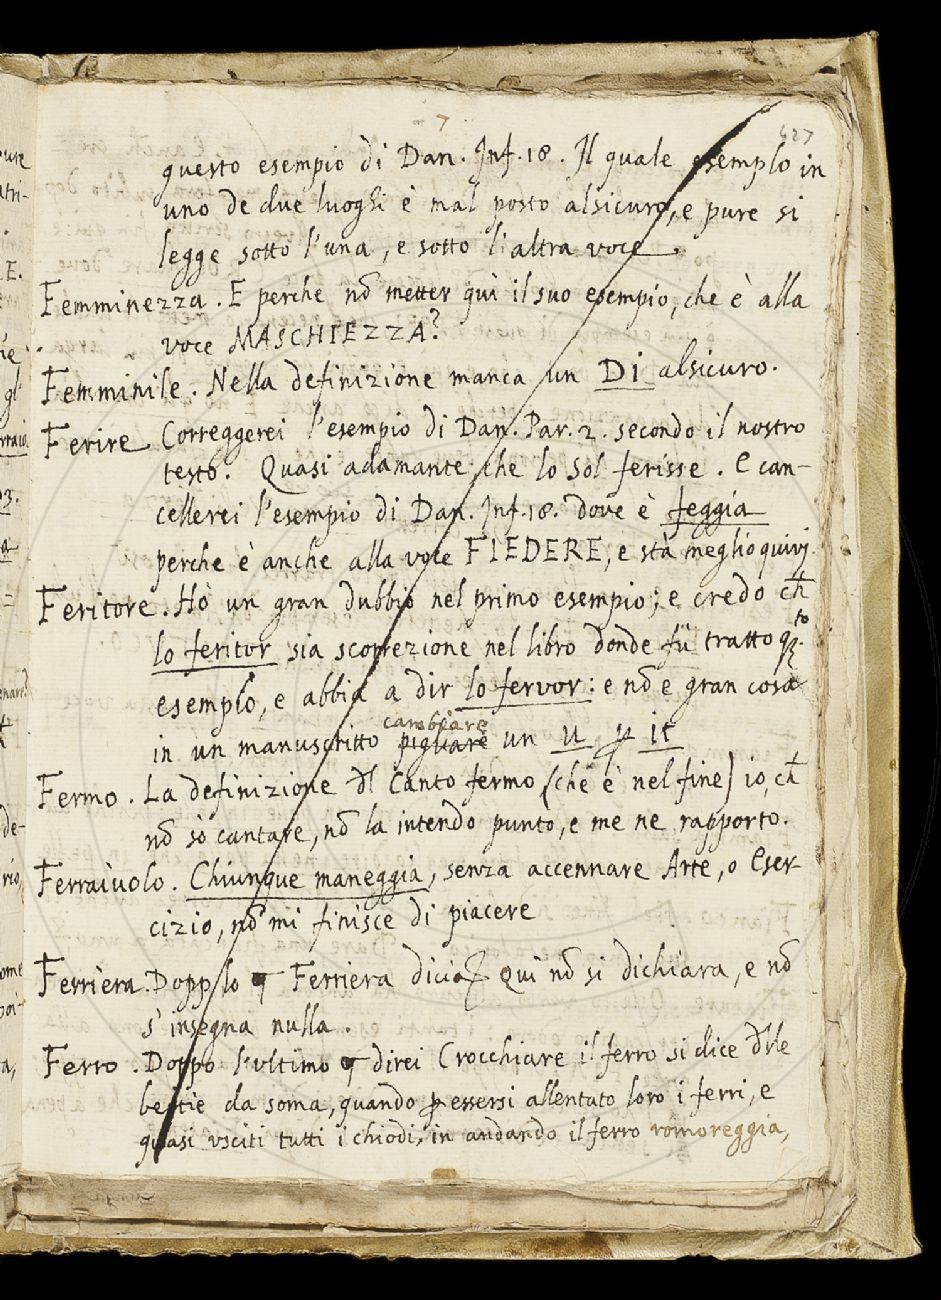 7
427
questo esempio di Dan. Inf. 18. Il quale esemplo in
uno de due luoghi è mal posto alsicuro, e pure si
legge sotto l'una, e sotto l'altra voce.
Femminezza. E perche nō metter quì il suo esempio, che è alla
voce MASCHIEZZA?
Femminile. Nella definizione manca un Di alsicuro.
Ferire Correggerei l'esempio di Dan. Par. 2. secondo il nostro
testo. Quasi adamante che lo Sol ferisse. E can-
cellerei l'esempio di Dan. Inf. 18. dove è feggia
perche è anche alla voce FIEDERE, e stà meglio quivi.
Feritore. Hò un gran dubbio nel primo esempio; e credo ch̄
lo feritor sia scorrezione nel libro donde fù tratto q.to
esemplo, e abbia a dir lo fervor: e nō è gran cosa
cambiare
in un manuscritto pigliare un u ꝑ it
Fermo. La definizione dl Canto fermo (che è nel fine) io, ch̄
nō sò cantare, nō la intendo punto, e me ne rapporto.
Ferraiuolo. Chiunque maneggia, senza accennare Arte, o Eser-
cizio, nō mi finisce di piacere
Ferriera. Dopp lo ꟼ Ferriera dicia Quì nō si dichiara, e nō
s'insegna nulla.
Ferro. Doppo l'ultimo ꟼ direi Crocchiare il ferro si dice dlle
bestie da soma, quando ꝑ essersi allentato loro i ferri, e
quasi usciti tutti i chiodi, in andando il ferro romoreggia,